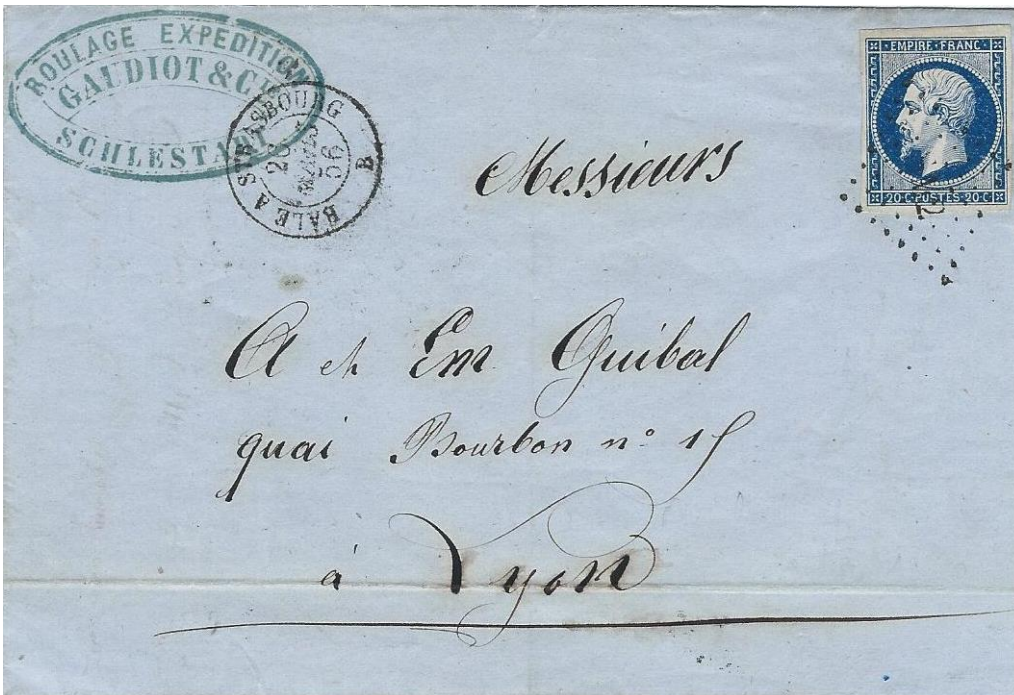 ROULAGE EXPEDITION
GAUDIOT & Cie
SCHLESTADT
BALE A STRASBOURG
56
B
EMPIRE · FRANC ·
20 · C · POSTES · 20 · C
Messieurs
A et Em Guibal
quai Bourbon n° 15
à Lyon